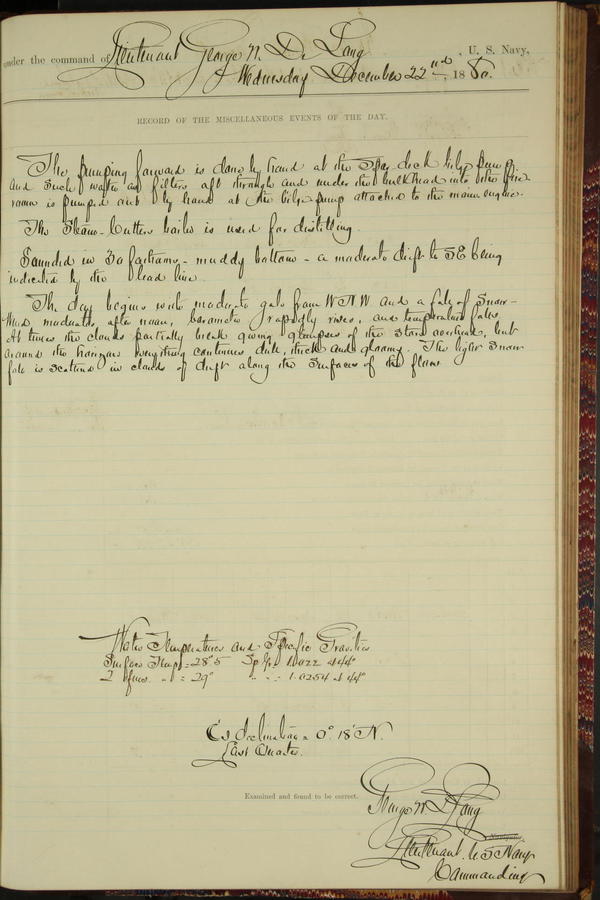 under the command of Lieutenant George W. De Long, U. S. Navy,
Wednesday December 22nd, 1880.
RECORD OF THE MISCELLANEOUS EVENTS OF THE DAY.
The pumping forward is done by hand at the Spar deck bilge pump,
and such water as filters aft through and under the bulkhead into the fire
room is pumped out by hand at the bilge pump attached to the main engine.
The Steam-Cutter's boiler is used for distilling
Sounded in 30 fathoms - muddy bottom - a moderate drift to SE being
indicated by the lead line.
The day begins with moderate gale from WNW and a fall of snow-
Wind moderates after noon, barometer rapidly rises, and temperature falls.
At times the clouds partially break giving glimpses of the stars overhead, but
around the horizon everything continues dull, thick and gloomy. The light snow
fall is scattered in clouds of drift along the surfaces of the floes
Water Temperatures and Specific Gravities
Surface Temp = 28°5 Sp Gr 1.022 at 44°
2 fms. " = 29° " " 1.0254 at 44°
☾'s declination = 0° 18' N.
Last Quarter.
Examined and found to be correct.
George W. De Long
Navigator.
Lieutenant. U S Navy
Commanding